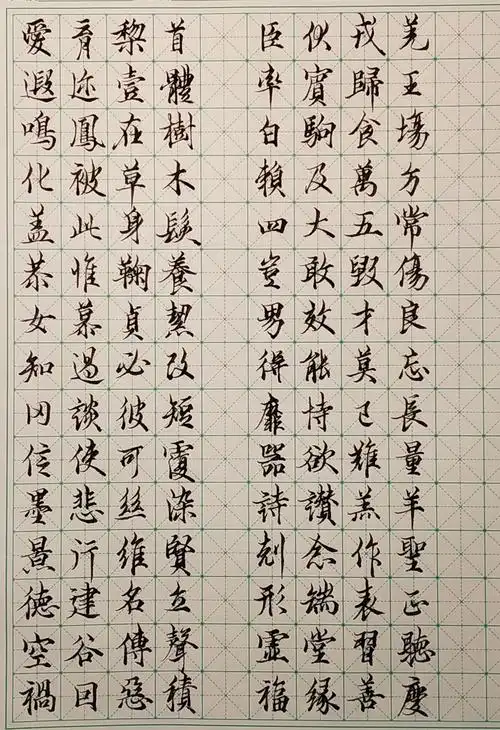 愛育黎首 臣伏戎羌
遐迩壹體 率賓歸王
鳴鳳在樹 白駒食場
化被草木 賴及萬方
蓋此身髮 四大五常
恭惟鞠養 豈敢毀傷
女慕貞絜 男效才良
知過必改 得能莫忘
罔談彼短 靡恃己長
信使可覆 器欲難量
墨悲絲染 詩讚羔羊
景行維賢 剋念作聖
德建名立 形端表正
空谷傳聲 虛堂習聽
禍因惡積 福緣善慶